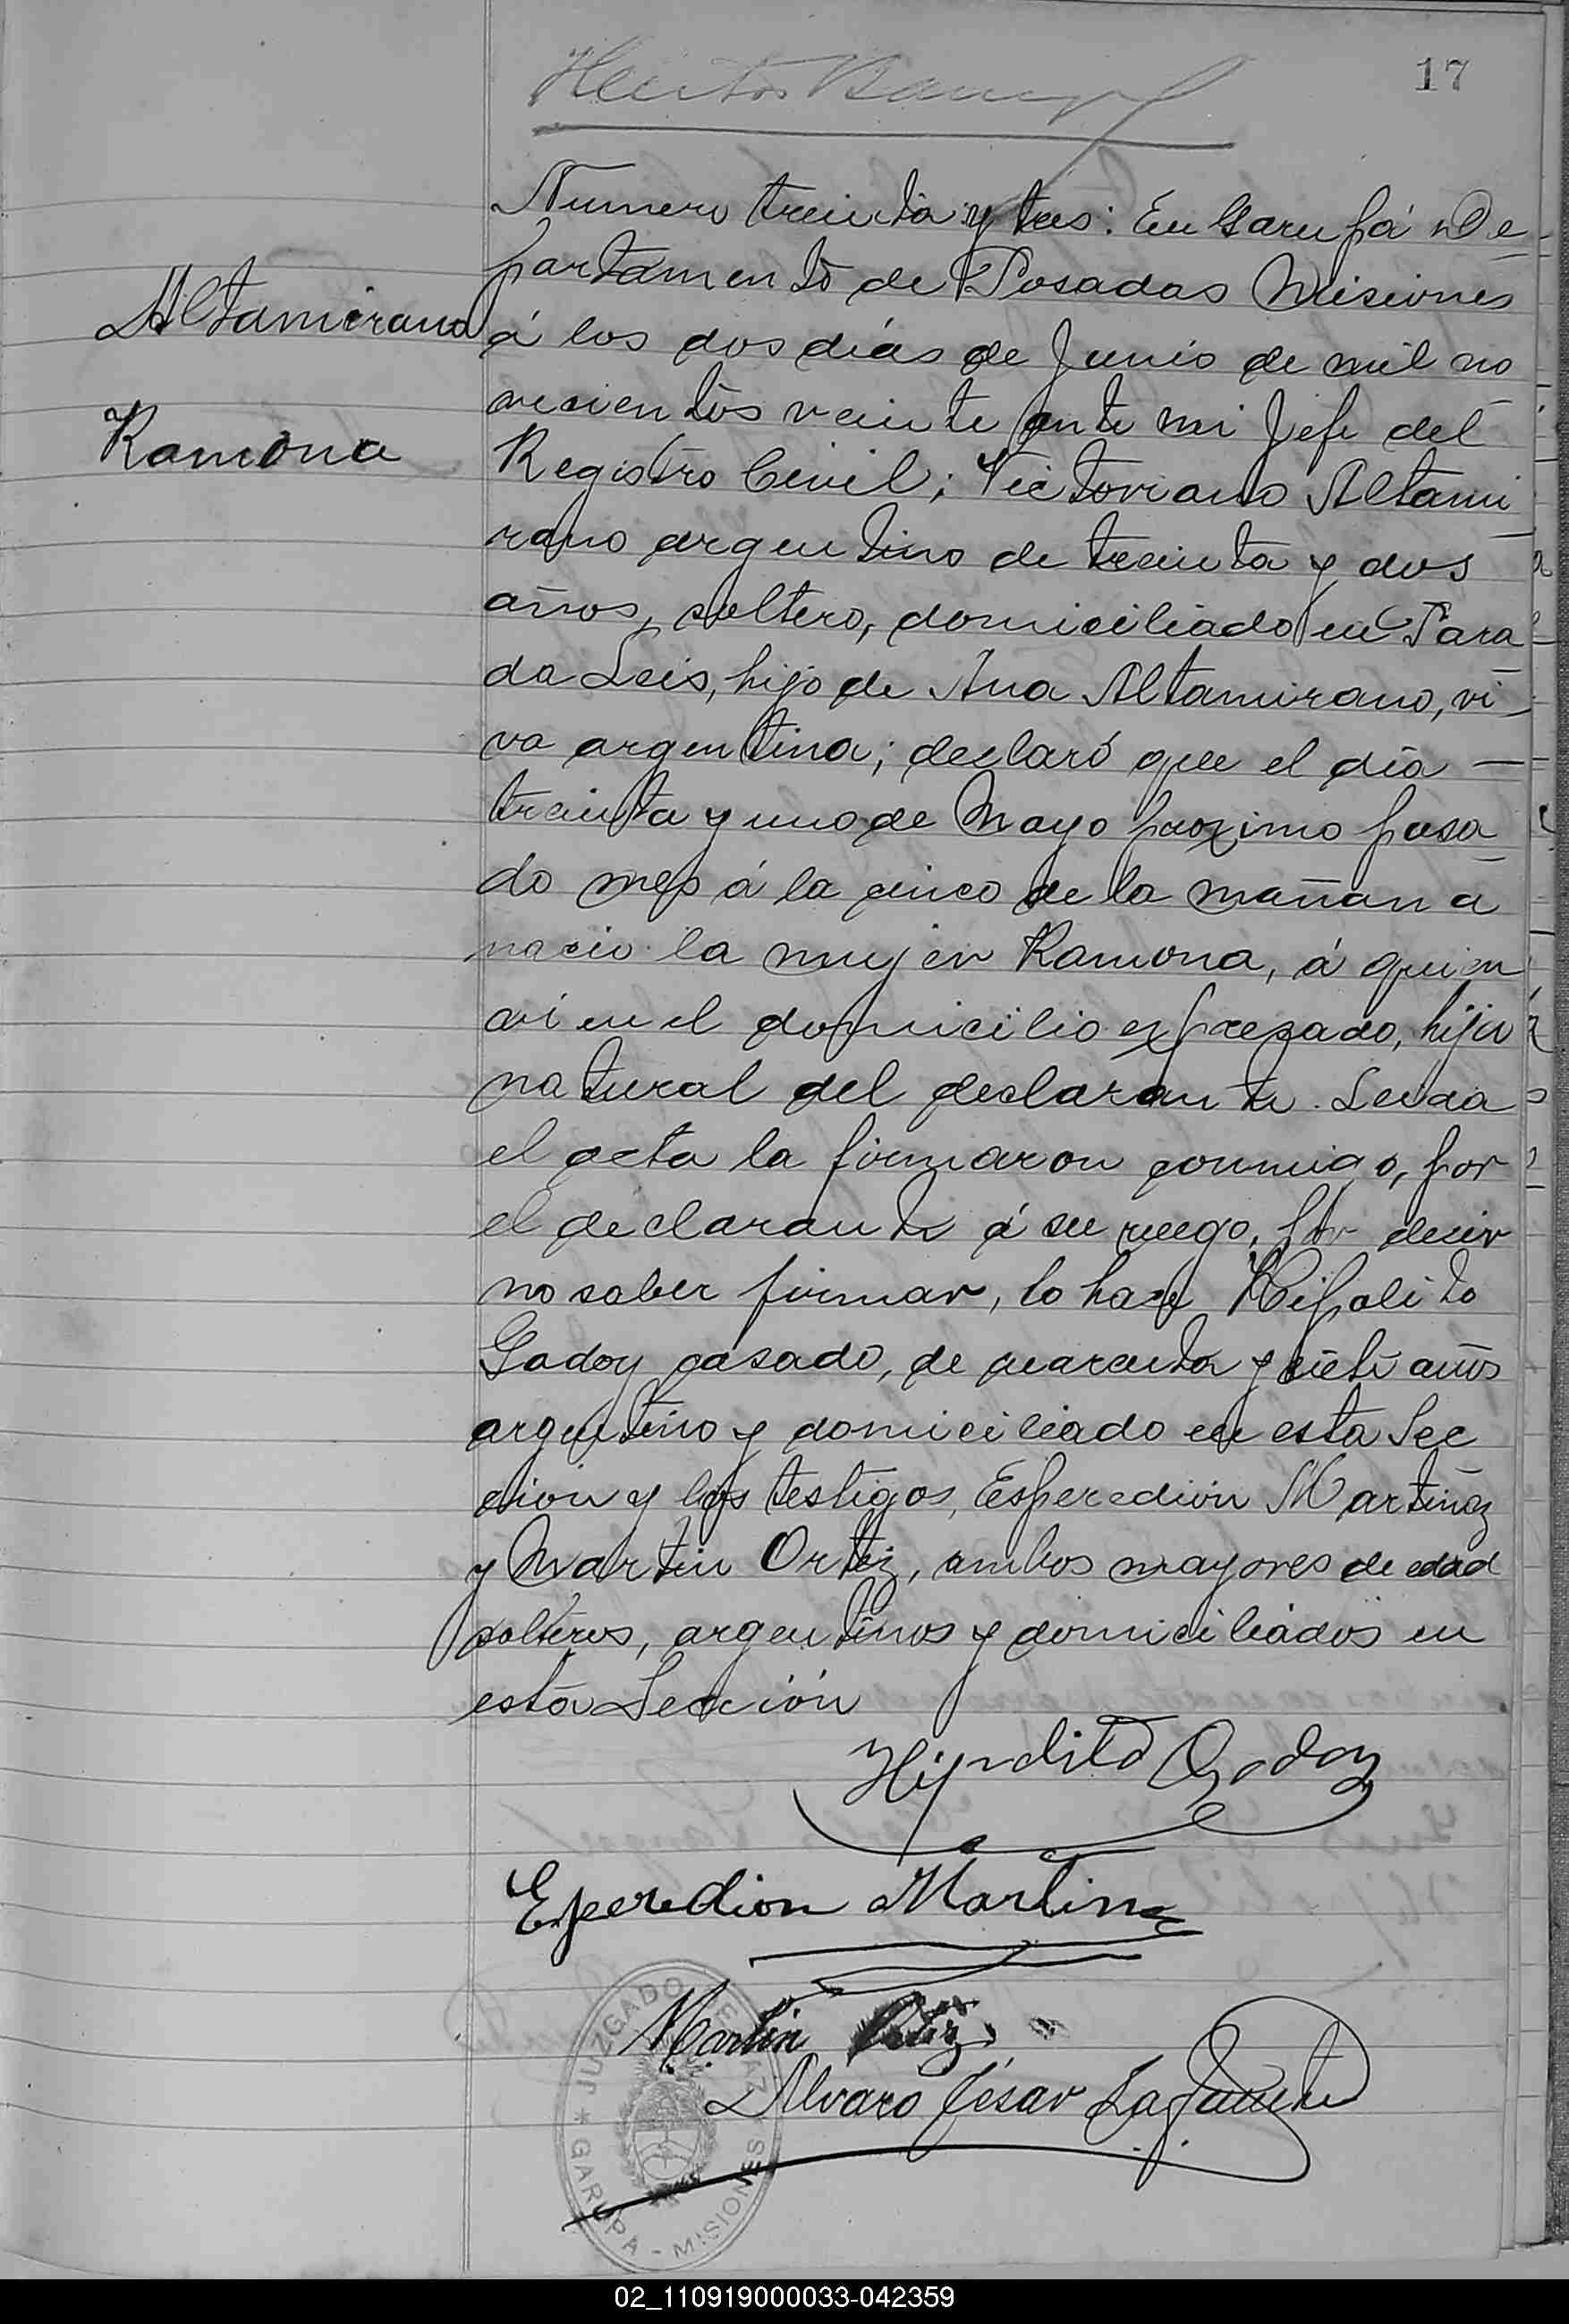 17
Numero treinta y tres: En Garupá De-
partamento de Posadas Misiones
Altamirano
á los dos días de Junio de mil no
vecientos veinte ante mi Jefe del
Ramona
Registro Civil; Victoriano Altami
rano argentino de treinta y dos
años, soltero, domiciliado en Para
da Leis, hijo de Ana Altamirano, vi-
va argentina; declaró que el día —
treinta y uno de Mayo proximo pasa
do mes á la cinco de la mañana
nacio la mujer Ramona, á quien
vi en el domicilio expresado, hija
natural del declarante. Leida
el acta la firmaron conmigo, por
el declarante á su ruego, por decir
no saber firmar, lo hace Hipolito
Godoy casado, de cuarenta y siete años
argentino y domiciliado en esta Sec
cion y los testigos, Esperedión Martinez
y Martin Ortiz, ambos mayores de edad
solteros, argentinos y domiciliados en
esta Sección
Hipolito Godoy
Esperedion Martinez
Martin Ortiz
Alvaro César
JUZGADO DE PAZ
* GARUPA - MISIONES
02_110919000033-042359